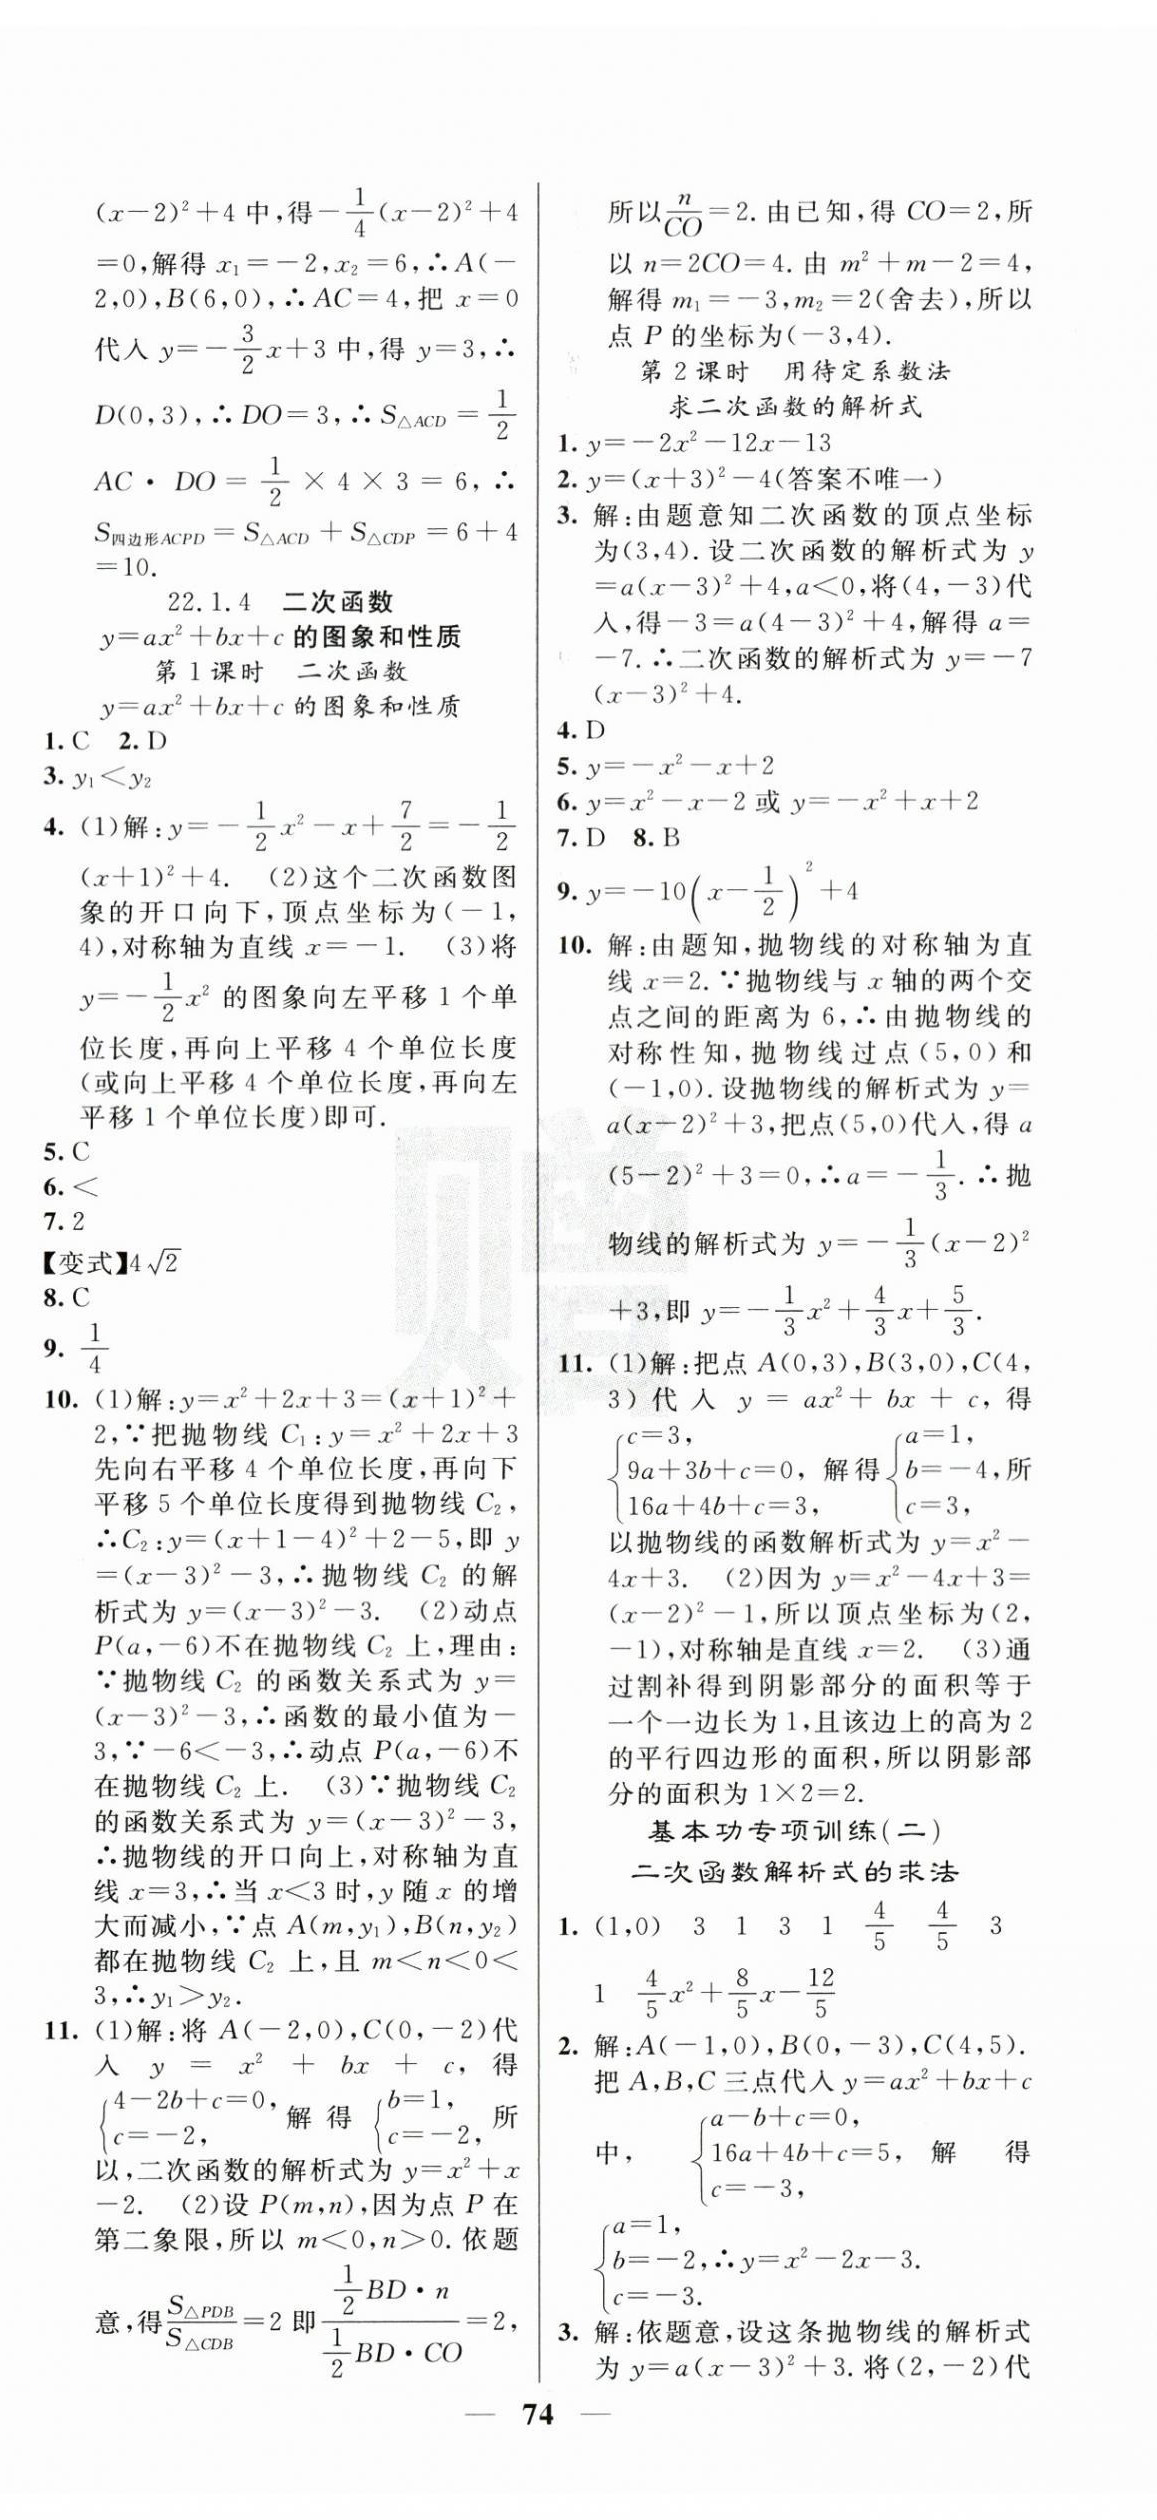 (x-2)²+4中,得-1/4(x-2)²+4
=0,解得 x₁=-2,x₂=6,∴A(-
2,0),B(6,0),∴AC=4,把 x=0
代入 y=-3/2x+3 中,得 y=3,∴
D(0,3),∴DO=3,∴S△ACD=1/2
AC·DO=1/2×4×3=6,∴
S四边形ACPD=S△ACD+S△CDP=6+4
=10.
22.1.4 二次函数
y=ax²+bx+c 的图象和性质
第1课时 二次函数
y=ax²+bx+c 的图象和性质
1. C 2. D
3. y₁<y₂
4. (1)解:y=-1/2x²-x+7/2=-1/2
(x+1)²+4. (2)这个二次函数图
象的开口向下,顶点坐标为(-1,
4),对称轴为直线 x=-1. (3)将
y=-1/2x² 的图象向左平移 1 个单
位长度,再向上平移 4 个单位长度
(或向上平移 4 个单位长度,再向左
平移 1 个单位长度)即可.
5. C
6. <
7. 2
【变式】4√2
8. C
9. 1/4
10. (1)解:y=x²+2x+3=(x+1)²+
2,∵把抛物线 C₁:y=x²+2x+3
先向右平移 4 个单位长度,再向下
平移 5 个单位长度得到抛物线 C₂,
∴C₂:y=(x+1-4)²+2-5,即 y
=(x-3)²-3,∴抛物线 C₂ 的解
析式为 y=(x-3)²-3. (2)动点
P(a,-6)不在抛物线 C₂ 上,理由:
∵抛物线 C₂ 的函数关系式为 y=
(x-3)²-3,∴函数的最小值为-
3,∵-6<-3,∴动点 P(a,-6)不
在抛物线 C₂ 上. (3)∵抛物线 C₂
的函数关系式为 y=(x-3)²-3,
∴抛物线的开口向上,对称轴为直
线 x=3,∴当 x<3 时,y 随 x 的增
大而减小,∵点 A(m,y₁),B(n,y₂)
都在抛物线 C₂ 上,且 m<n<0<
3,∴y₁>y₂.
11. (1)解:将 A(-2,0),C(0,-2)代
入 y = x² + bx + c, 得
{4-2b+c=0, c=-2, 解得 {b=1, c=-2, 所
以,二次函数的解析式为 y=x²+x
-2. (2)设 P(m,n),因为点 P 在
第二象限,所以 m<0,n>0. 依题
意,得 S△PDB/S△CDB=2 即 (1/2BD·n)/(1/2BD·CO)=2,
所以 n/CO=2. 由已知,得 CO=2,所
以 n=2CO=4. 由 m²+m-2=4,
解得 m₁=-3,m₂=2(舍去),所以
点 P 的坐标为(-3,4).
第2课时 用待定系数法
求二次函数的解析式
1. y=-2x²-12x-13
2. y=(x+3)²-4(答案不唯一)
3. 解:由题意知二次函数的顶点坐标
为(3,4). 设二次函数的解析式为 y
=a(x-3)²+4,a<0,将(4,-3)代
入,得-3=a(4-3)²+4,解得 a=
-7. ∴二次函数的解析式为 y=-7
(x-3)²+4.
4. D
5. y=-x²-x+2
6. y=x²-x-2 或 y=-x²+x+2
7. D 8. B
9. y=-10(x-1/2)²+4
10. 解:由题知,抛物线的对称轴为直
线 x=2. ∵抛物线与 x 轴的两个交
点之间的距离为 6,∴由抛物线的
对称性知,抛物线过点(5,0)和
(-1,0). 设抛物线的解析式为 y=
a(x-2)²+3,把点(5,0)代入,得 a
(5-2)²+3=0,∴a=-1/3. ∴抛
物线的解析式为 y=-1/3(x-2)²
+3,即 y=-1/3x²+4/3x+5/3.
11. (1)解:把点 A(0,3),B(3,0),C(4,
3) 代入 y = ax² + bx + c, 得
{c=3, 9a+3b+c=0, 16a+4b+c=3, 解得 {a=1, b=-4, c=3, 所
以抛物线的函数解析式为 y=x²-
4x+3. (2)因为 y=x²-4x+3=
(x-2)²-1,所以顶点坐标为(2,
-1),对称轴是直线 x=2. (3)通
过割补得到阴影部分的面积等于
一个一边长为 1,且该边上的高为 2
的平行四边形的面积,所以阴影部
分的面积为 1×2=2.
基本功专项训练(二)
二次函数解析式的求法
1. (1,0) 3 1 3 1 4/5 4/5 3
1 4/5x²+8/5x-12/5
2. 解:A(-1,0),B(0,-3),C(4,5).
把 A,B,C 三点代入 y=ax²+bx+c
中, {a-b+c=0, 16a+4b+c=5, c=-3, 解 得
{a=1, b=-2, c=-3. ∴y=x²-2x-3.
3. 解:依题意,设这条抛物线的解析式
为 y=a(x-3)²+3. 将(2,-2)代
— 74 —